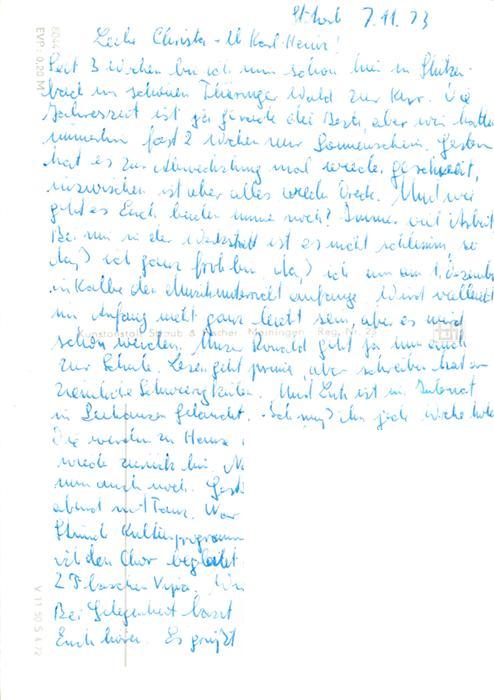 Stützerb. 7.11.73
Liebe Christa u. Karl-Heinz!
Seit 3 Wochen bin ich nun schon hier in Stützer-
bach im schönen Thüringer Wald zur Kur. Die
Jahreszeit ist ja gerade die Beste, aber wir hatten
immerhin fast 2 Wochen nur Sonnenschein. Gestern
hat es zur Abwechslung mal wieder geschneit,
inzwischen ist aber alles wieder Dreck. Und wie
geht es Euch beiden immer noch? Immer viel Arbeit
Bei mir in der Werkstatt ist es nicht schlimm, so
daß ich ganz froh bin, daß ich nun am 1. Dezember
in Kalbe den Musikunterricht anfange. Wird vielleicht
im Anfang nicht ganz leicht sein, aber es wird
schon werden. Unser Ronald geht ja nun auch
zur Schule. Lesen geht prima, aber schreiben hat er
ziemliche Schwierigkeiten. Und ist im Internat
in Seehausen gelandet. Ich muß ihn jede Woche holen
Die werden zu Hause
wieder zurück bin.
nun auch noch. Gest
abend mit Tanz. War
Stund Kulturprogramm
den Chor begleitet
2 Flaschen
Bei Gelegenheit lasst
Euch hören. Es grüßt
EVP: 0,20 M
Kunstanstalt Straub & Fischer Meiningen Reg. Nr.
V 11 50 S 4 72